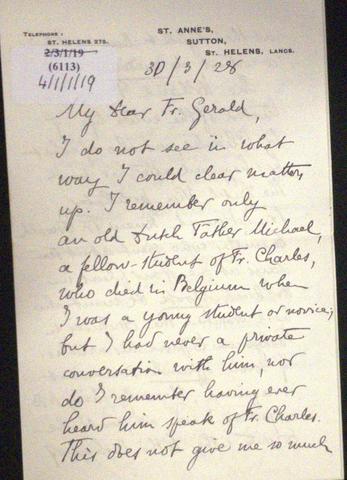 TELEPHONE:
ST. HELENS 275.
ST. ANNE'S,
SUTTON,
ST. HELENS, LANCS.
2/3/1/19
(6113)
4/1/1/19
30/3/28
My Dear Fr. Gerald,
I do not see in what
way I could clear matters
up. I remember only
an old Dutch Father Michael,
a fellow-student of Fr. Charles,
who died in Belgium when
I was a young student or novice;
but I had never a private
conversation with him, nor
do I remember having ever
heard him speak of Fr. Charles.
This does not give me so much